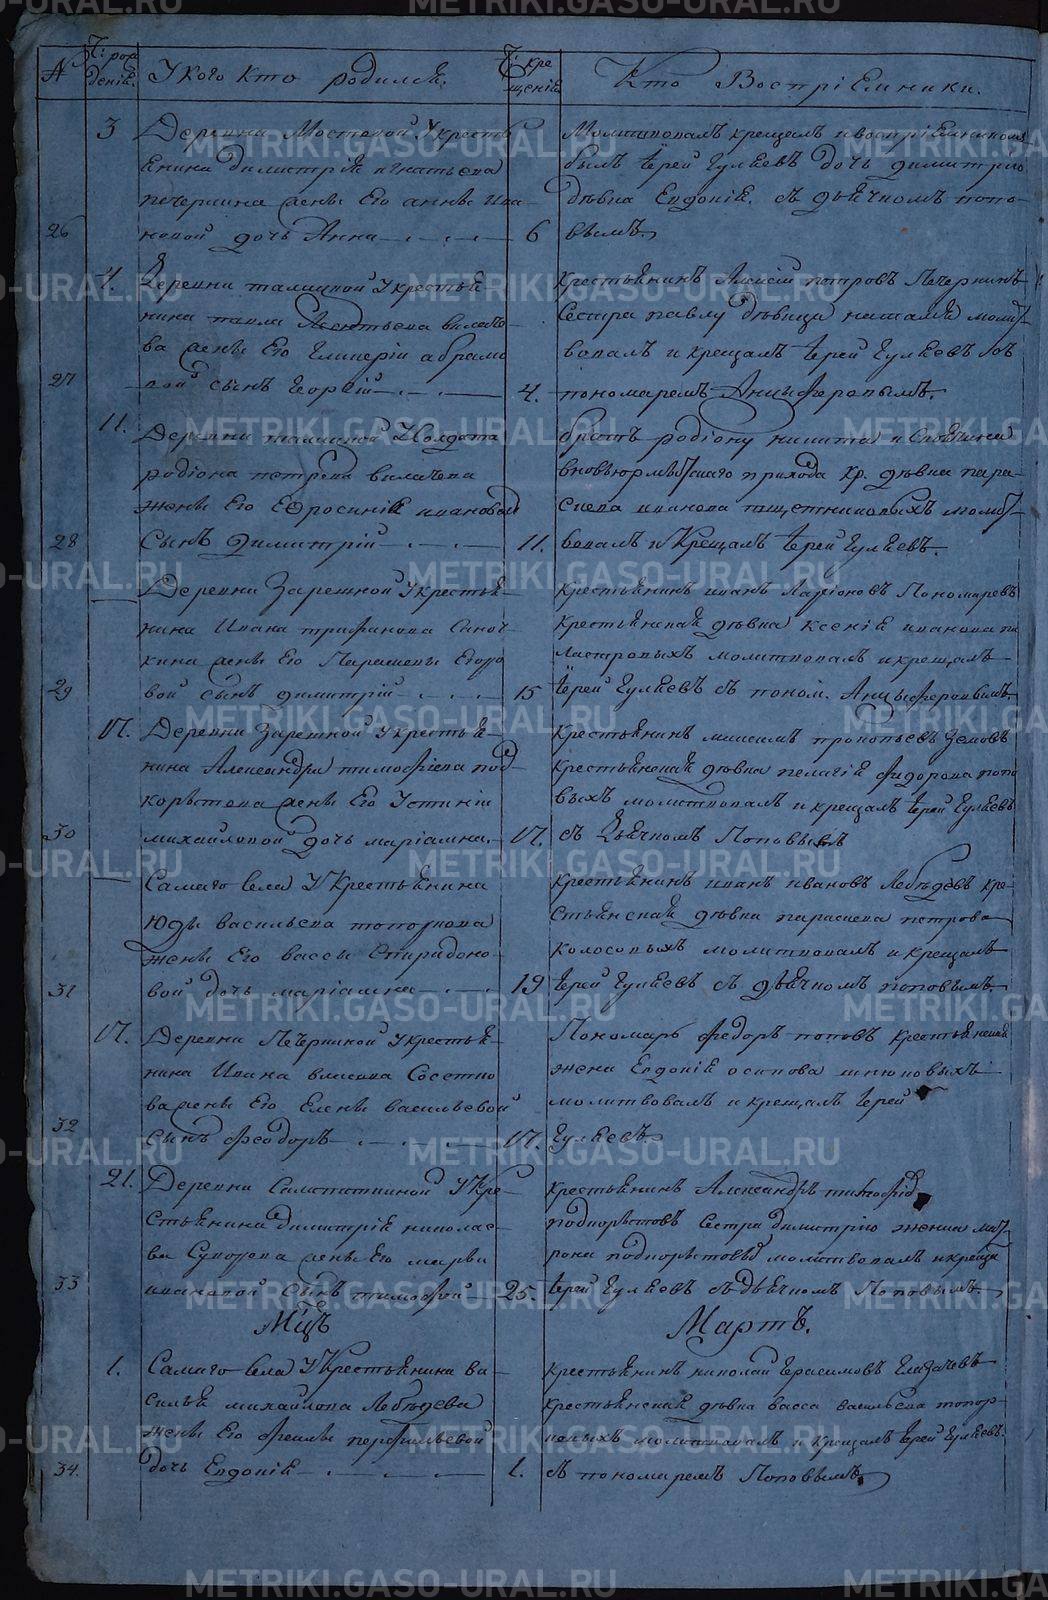 № Ч: рож
дений. У кого кто родился. Ч: кре
щений Кто Восприемники.
3 Деревни Мостовой У кресть
янина димитрия игнатьева
печеркина жены Его анны Ива
26 новой дочь Анна 6
Молитвовалъ крещалъ и восприемникомъ
былъ Iерей Гуляевъ дочь димитрIо
дѣвка ЕвдокIя. съ дьячкомъ попо
вымъ.
4. Деревни талицкой У крестья
нина павла Леонтьева
ва жены Его ГликерIи абрамо
27 вой сынъ ГеоргIй 4.
Крестьянинъ АлексIй петровъ Печеркинъ
Сестра павлу дѣвица молит
вовалъ и крещалъ Iерей Гуляевъ съ
пономаремъ Анцыферовымъ.
11. Деревни талицкой У Солдата
родIона петрова
жены Его ЕфросинIи ивановой
28 Сынъ ДимитрIй 11.
братъ родIону никита и
прихода кр. дѣвка пара
скева иванова молит
вовалъ и Крещалъ Iерей Гуляевъ.
— Деревни Зарешной У крестья
нина Ивана трифанова
кина жены Его Парасковьи Егоро
29 вой сынъ димитрIй 15
крестьянинъ иванъ ЛарIоновъ Пономаревъ
крестьянская дѣвка КсенIя иванова
молитвовалъ и крещалъ
Iерей Гуляевъ съ поном. Анцыферовымъ.
17. Деревни Зарешной У крестья
нина Александра тимофIева под
корытова жены Его УстинIи
30 михайловой дочь марIамна. 17.
крестьянинъ максимъ прокопьевъ Земовъ
крестьянская дѣвка пелагIя фидорова попо
выхъ молитвовалъ и крещалъ Iерей Гуляевъ
съ Дьячкомъ Поповымъ
— Самаго села У Крестьянина
Юды васильева топоркова
жены Его вассы Спиридоно
31 вой дочь марIамна 19
крестьянинъ иванъ ивановъ Лебѣдевъ кре
стьянская дѣвка параскева петрова
Колосовыхъ молитвовалъ и крещалъ
Iерей Гуляевъ съ дьячкомъ поповымъ.
17. Деревни Печеркиной У крестья
нина Ивана власова Сосетко
ва жены Его Елены васильевой
32 Сынъ Феодоръ 17.
Пономарь федоръ поповъ крестьянская
жена ЕвдокIя осипова
молитвовалъ и крещалъ Iерей
Гуляевъ.
21. Деревни У кре
стьянина димитрIя николае
ва жены Его марьи
33 ивановой сынъ тимофей 25.
крестьянинъ Александръ тимофIев
подкорытовъ Сестра димитрIю жена мат
рона подкорытовы молитвовалъ и креща
Iерей Гуляевъ съ дьячкомъ Поповымъ.
Мцъ Мартъ.
1. Самаго села У Крестьянина ва
силья михайлова Лебѣдева
жены Его феклы перфильевой
34. дочь ЕвдокIя 1.
крестьянинъ николай Герасимовъ
крестьянская дѣвка васса васильева топор
ковыхъ молитвовалъ и крещалъ Iерей Гуляевъ.
съ пономаремъ Поповымъ.
METRIKI.GASO-URAL.RU